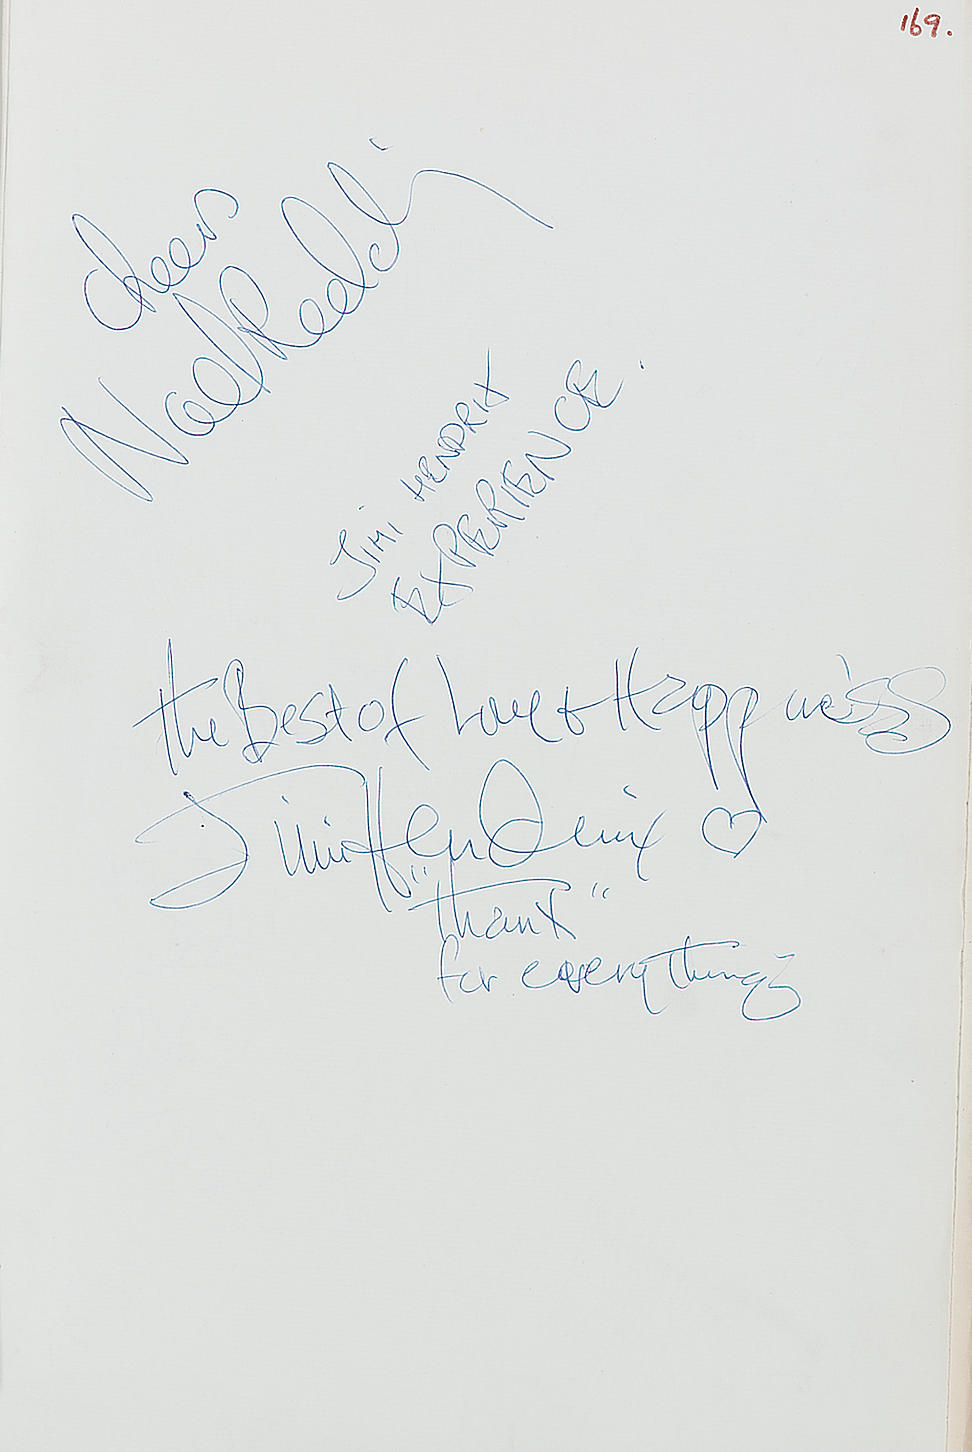 169.
Cheers
Noel Redding
JIMI HENDRIX
EXPERIENCE.
the Best of Love & Happiness
Jimi Hendrix
"Thanx"
for everything